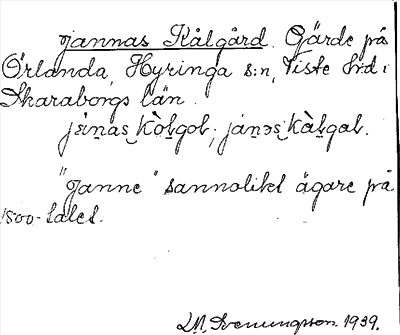 Jannas Kålgård. Gärde på
Örlanda, Hyringa s:n, Viste h:d i
Skaraborgs län.
"Janne" sannolikt ägare på
1800-talet.
L.M. Svenungsson. 1939.